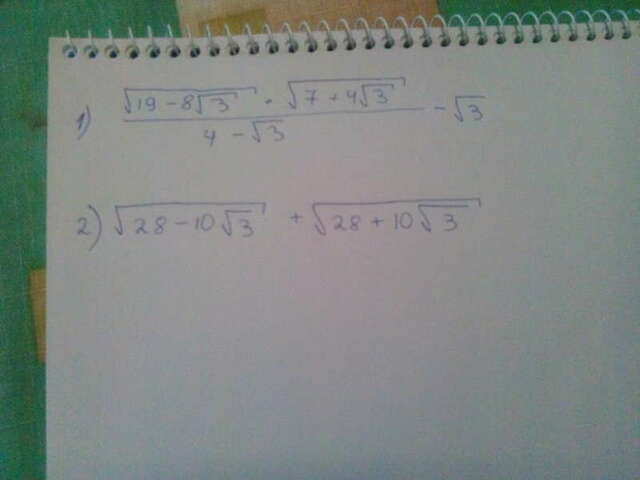 1) (√(19 - 8√3) · √(7 + 4√3)) / (4 - √3) - √3
2) √(28 - 10√3) + √(28 + 10√3)